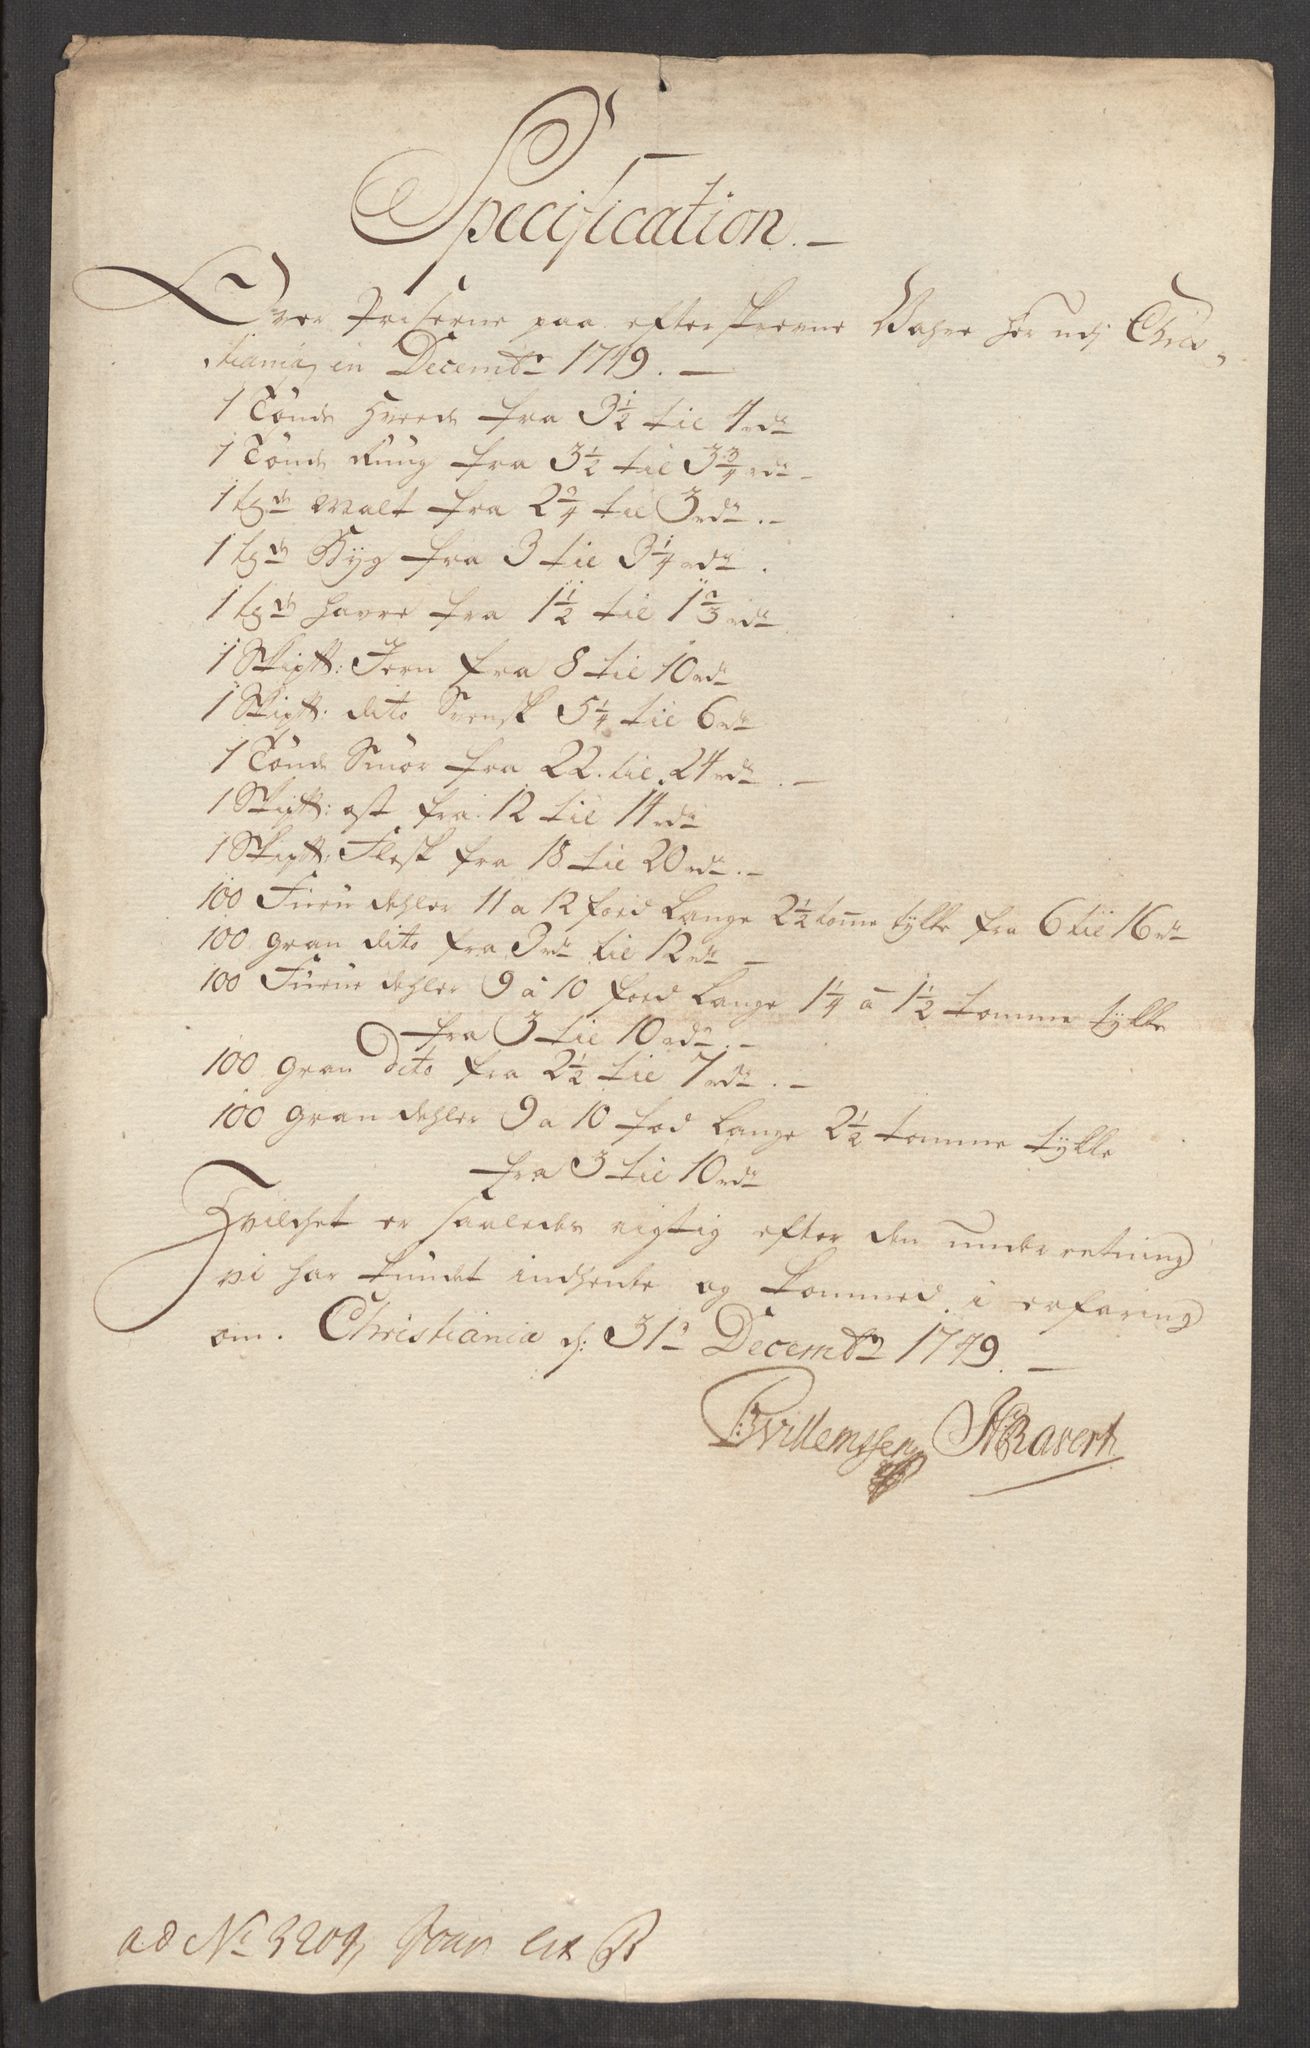 Specification. —
Over Priserne paa efterskrevne Wahre her udj Chri-
stiania, in Decembr 1749. —
1 Tønde Hvede fra 3½ til 4 rdr
1 Tønde Rüug fra 3½ til 3¾ rdr –
1 tønde Malt fra 2¾ til 3 rdr. –
1 tønde Byg fra 3 til 3¼ rdr.
1 tønde Havre fra 1½ til 1⅔ rdr
1 Skip℔: Jern fra 8 til 10 rdr
1 Skip℔: dito Svensk 5¼ til 6 rdr
1 Tønde Smør fra 22. til 24 rdr. –
1 Skip℔: ost fra 12 til 14 rdr
1 Skip℔: Flesk fra 18 til 20 rdr. –
100 Furu dehler 11 a 12 foed Lange 2½ tomme tykke fra 6 til 16 rdr
100 gran dito fra 3 rdr til 12 rdr –
100 Furu dehler 9 à 10 foed Lange 1¼ a 1½ tomme tykke
fra 3 til 10 rdr. –
100 gran dito fra 2½ til 7 rdr. –
100 gran dehler 9 a 10 fod Lange 2½ tomme tykke
fra 3 til 10 rdr
Hvilchet er saaledes rigtig efter den underretning
vi har kundet indhente og kommed i erfaring
om. Christiania d: 31te Decembr 1749. —
BWillemssen Ravert
ad No 3209, Lit B